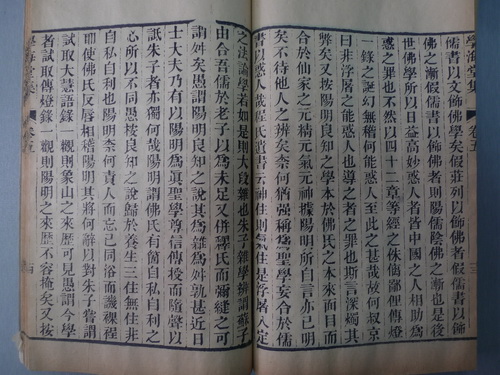 學海堂集 卷五 三
儒書以文飾佛學矣假莊列以飾佛者假儒書以飾
佛之漸假儒書以飾佛者則陽儒陰佛之漸也是後
世佛學所以日益高妙惑人者皆中國之人相助為
惑之罪也不然以四十二章等經之侏僪鄙俚傳燈
一錄之誕幻無稽何能惑人至此之甚哉故何叔京
曰非浮屠之能惑人也導之者之罪也斯言深燭其
弊矣而又按陽明良知之學本於佛氏之本來面目而
合於仙家之元精元氣元神據陽明所自言亦已明
矣不待他人之辨矣柰何猶强稱為聖學妄合於儒
書以惑人哉程氏遺書云神住則氣住是浮屠入定
之法論學若如是則大段雜也朱子雜學辨謂蘇子
由合吾儒於老子以為未足又併釋氏而彌縫之可
謂舛矣愚謂陽明良知之說其為雜為舛孰甚近日
士大夫乃有以陽明為眞聖學尊信傳授而隨聲以
詆朱子者亦獨何哉陽明謂佛氏有箇自私自利之
心所以不同愚按良知之說歸於養生三住無住非
自私自利也柰何責人而忘己同浴而譏裸裎
即使佛氏反脣相稽陽明其將何辭以對朱子嘗謂
試取大慧語錄一觀則象山之來歷可見愚謂今學
者試取傳燈錄一觀則陽明之來歷不容掩矣又按
學海堂集 卷五 四